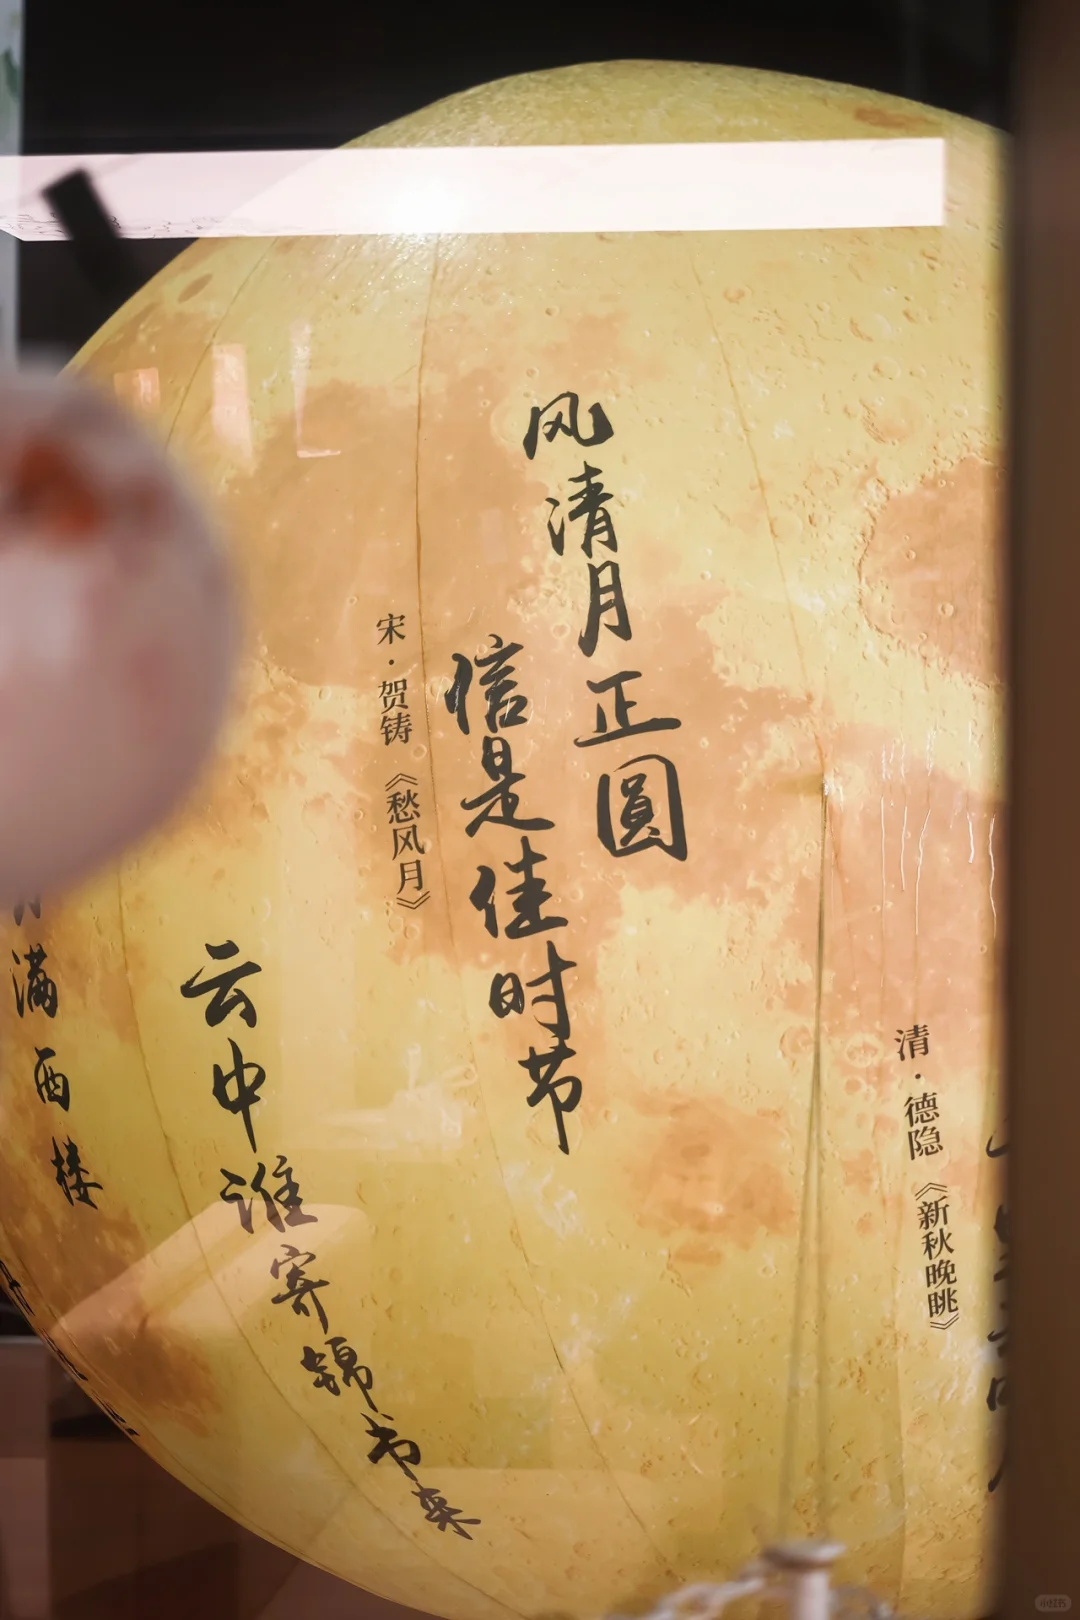 清·德隐《新秋晚眺》
风清月正圓
信是佳时节
宋·贺铸《愁风月》
云中谁寄锦书来
月满西楼
小红书